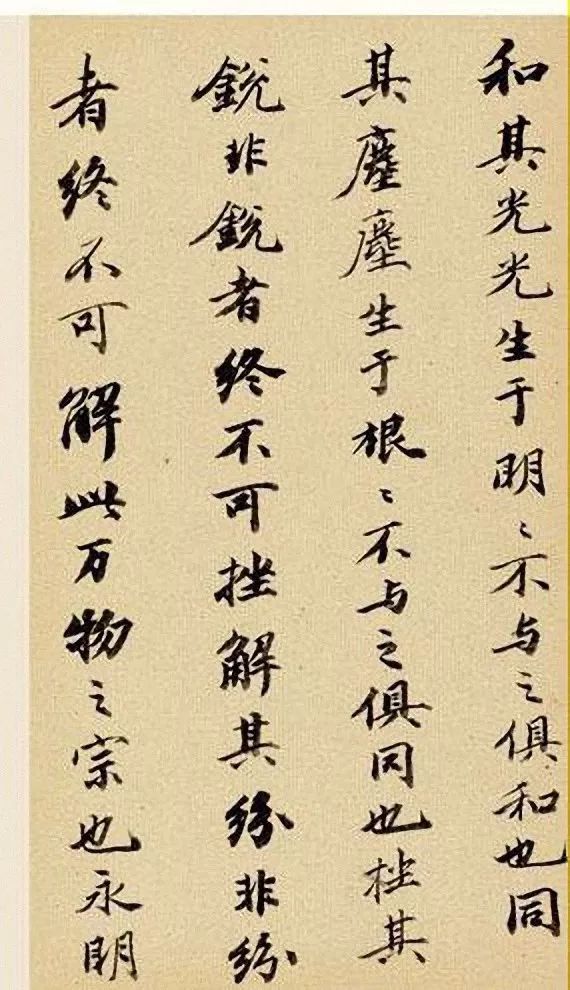 和其光光生于明〻不与之俱和也同
其塵塵生于根〻不与之俱同也挫其
銳非銳者终不可挫解其紛非紛
者终不可解此万物之宗也永明